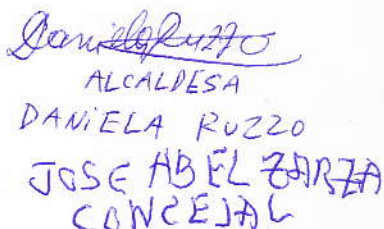 Daniela Ruzzo
ALCALDESA
DANiELA RUZZO
JOSE ABEL ZARZA
CONCEJAL